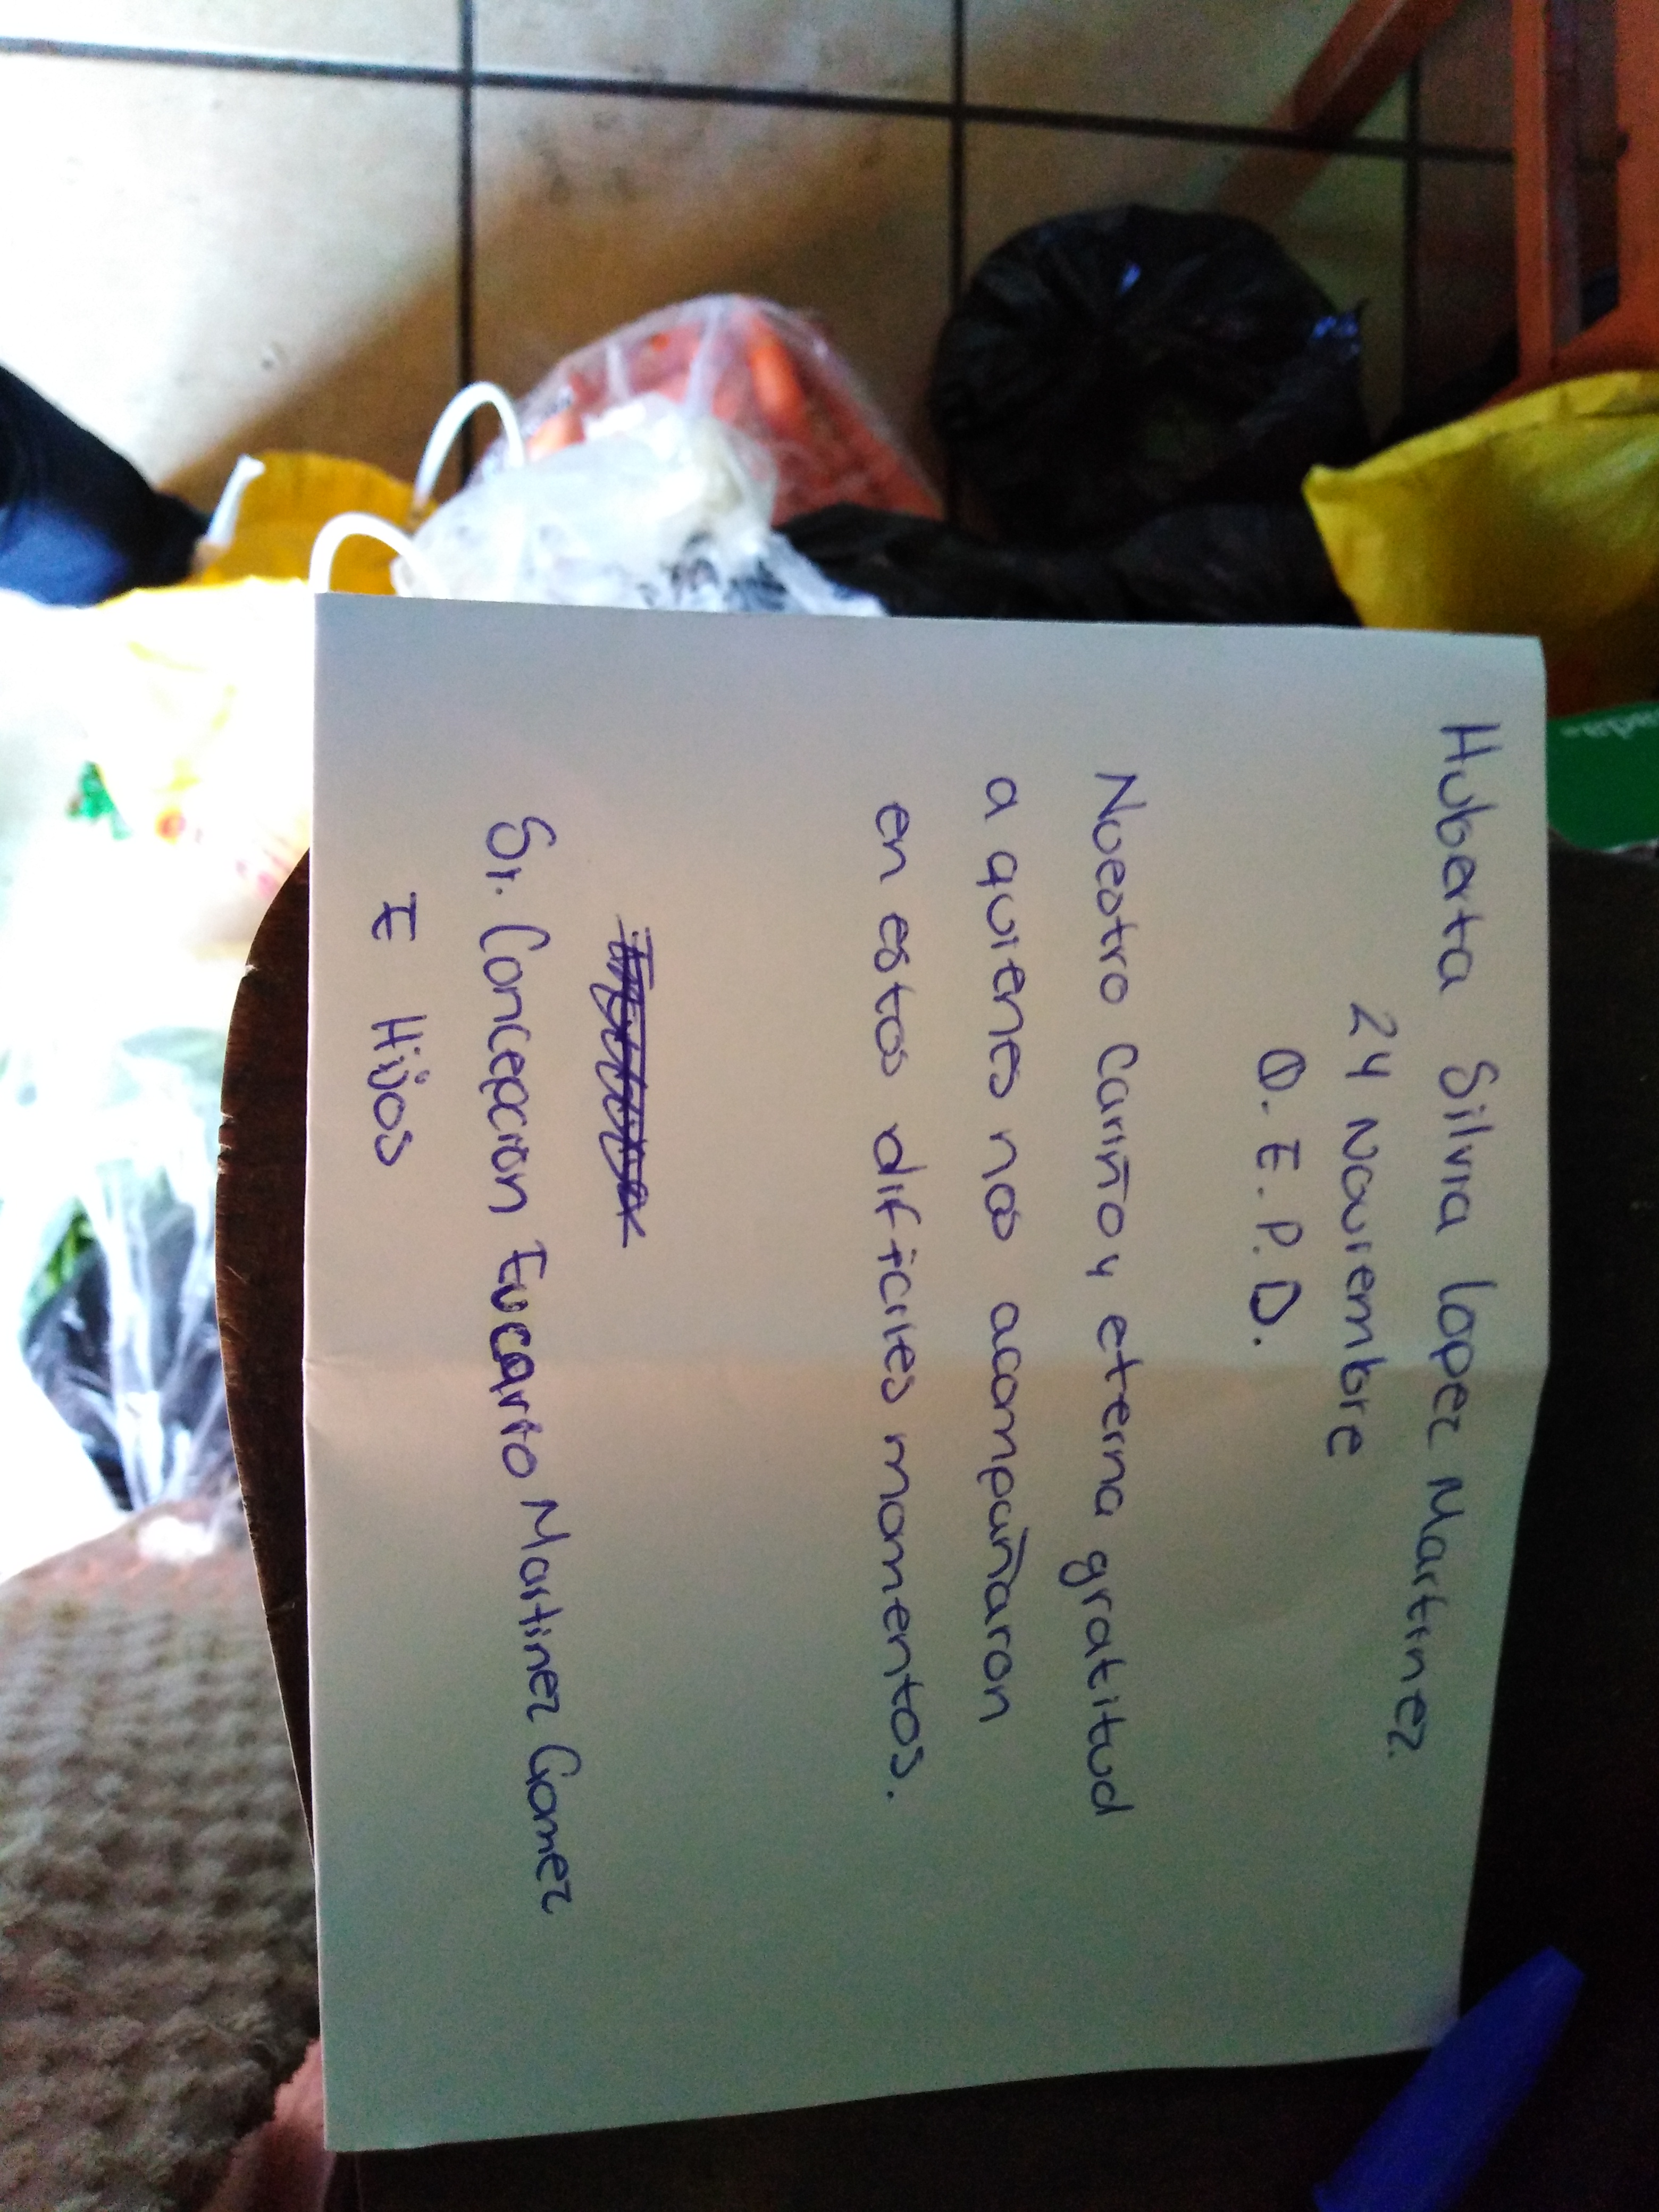 Huberta Silvia lopez Martinez.
24 Noviembre
Q. E. P. D.
Nuestro Cariño y eterna gratitud
a quienes nos acompañaron
en estos dificiles momentos.
Sr. Concepcion Eucario Martinez Gomez
E Hijos